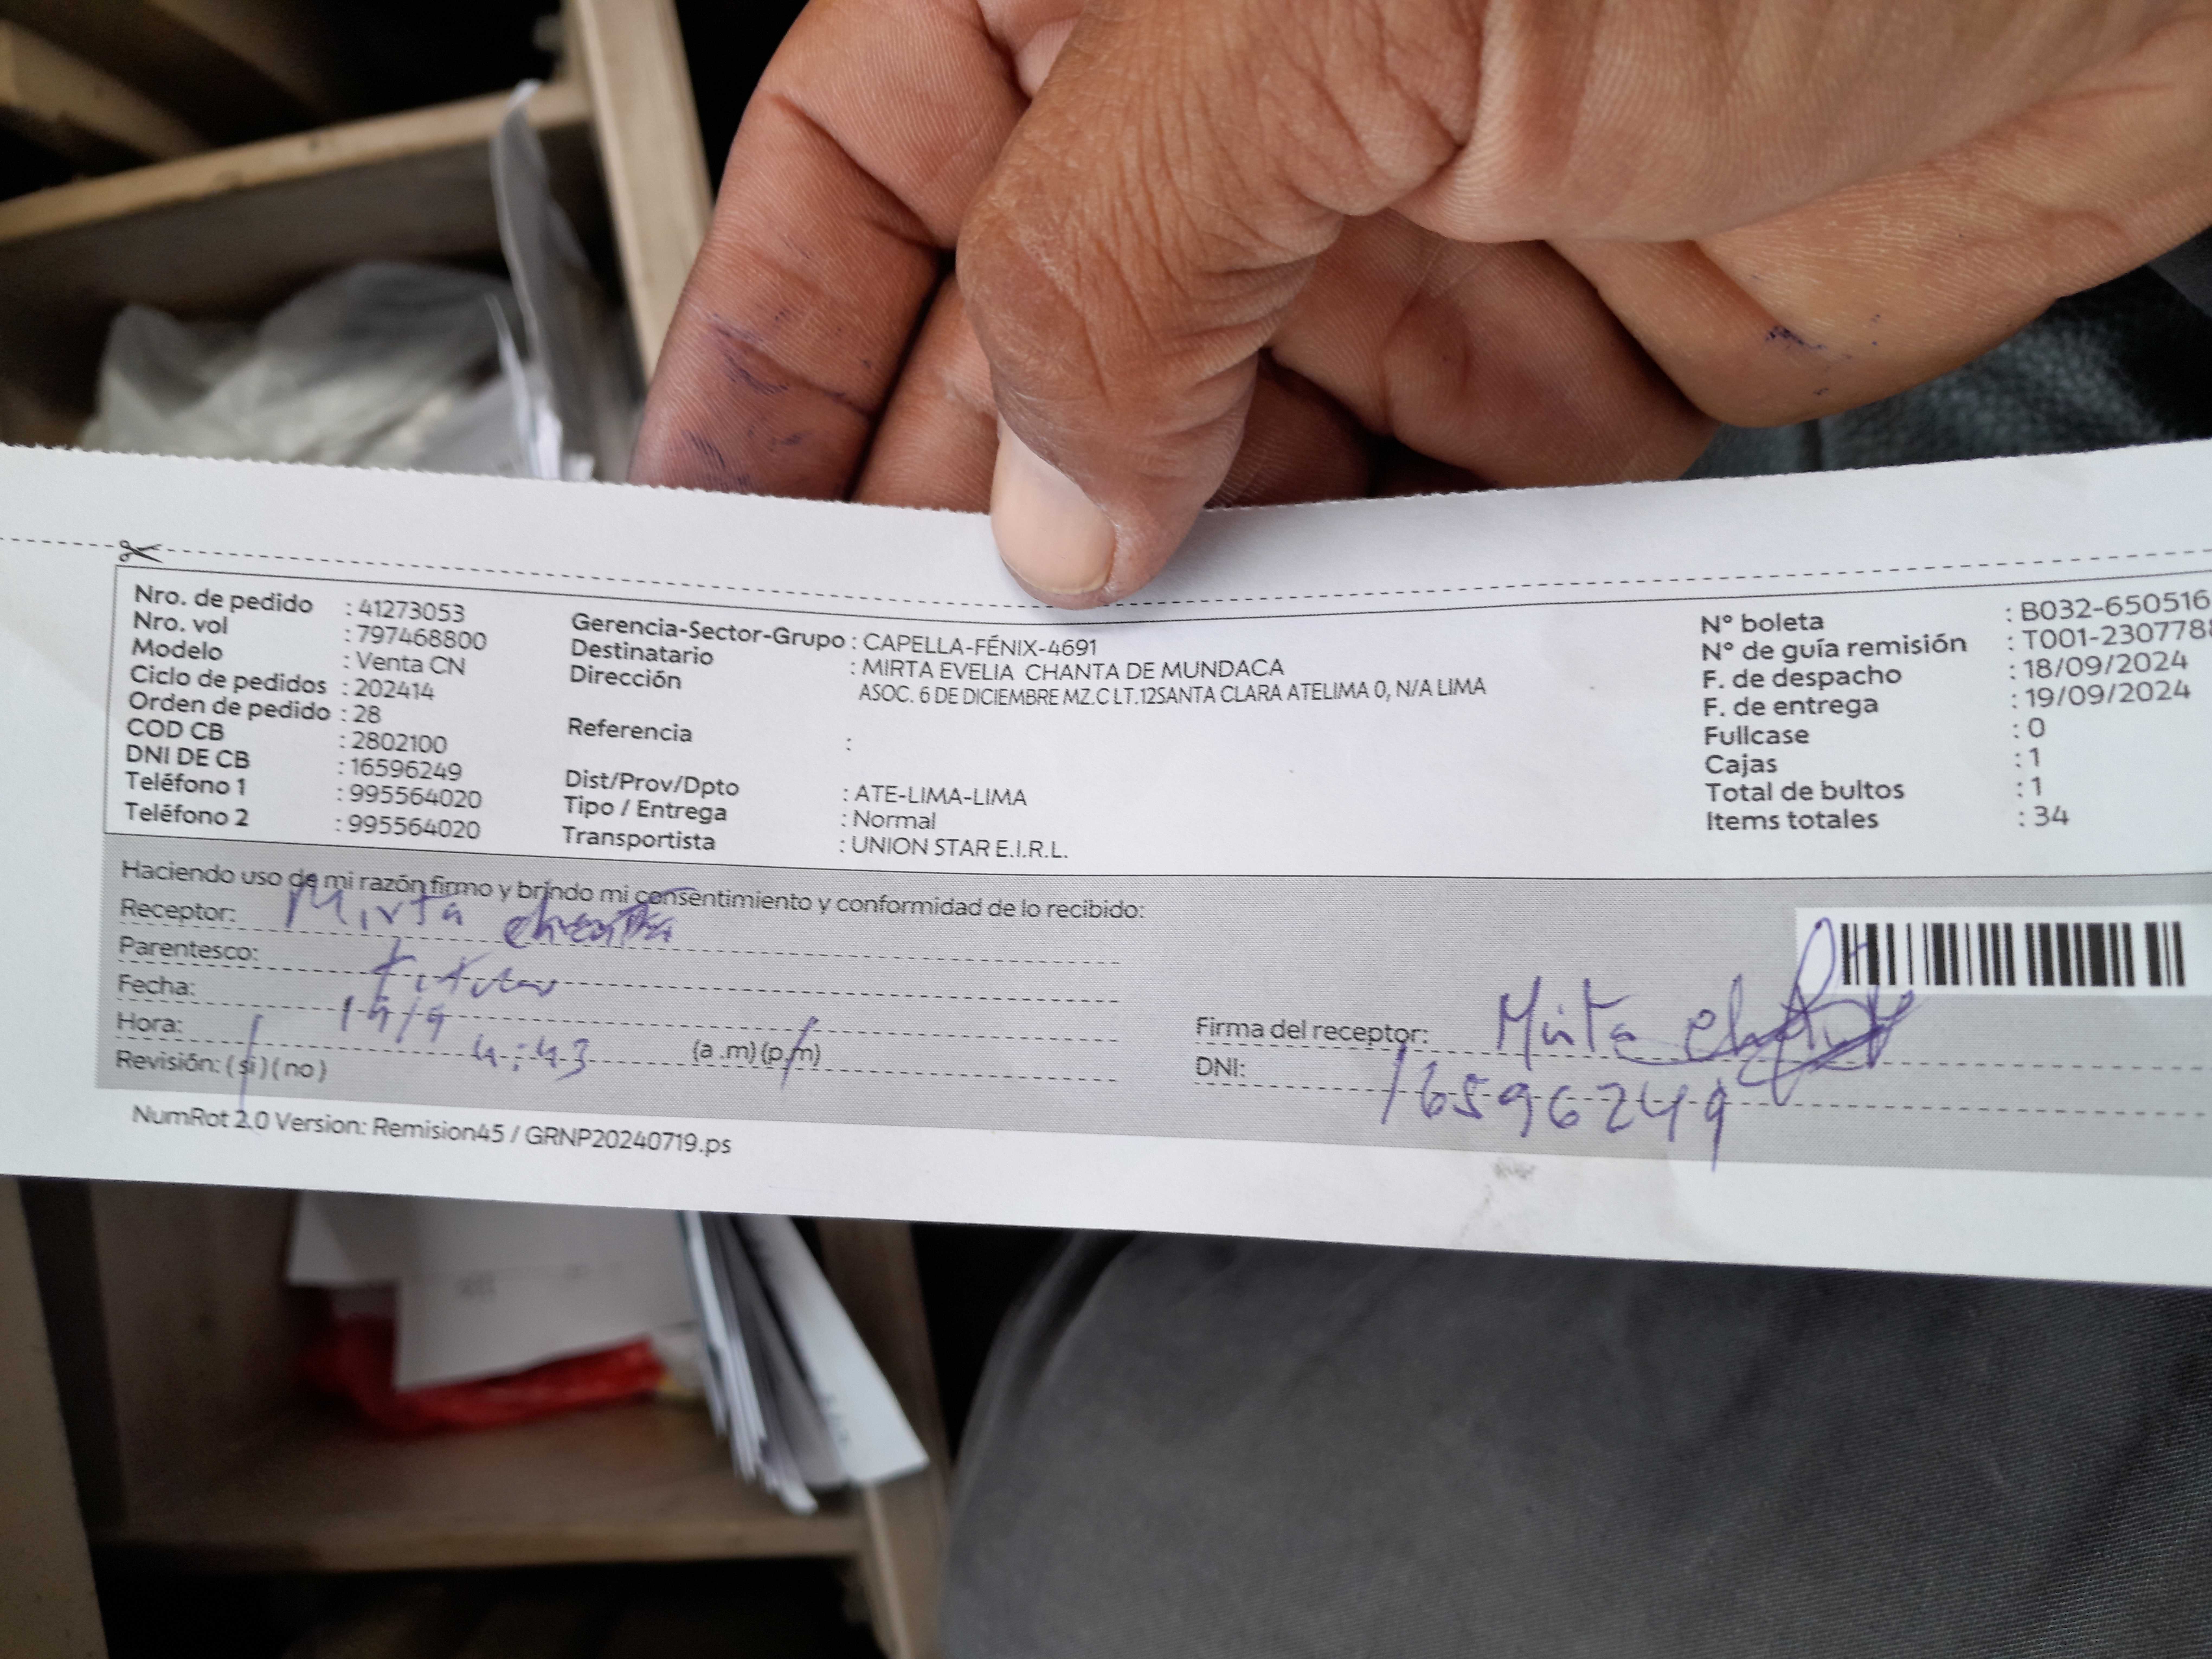 Nro. de pedido : 41273053
Nro. vol : 797468800
Modelo : Venta CN
Ciclo de pedidos : 202414
Orden de pedido : 28
COD CB : 2802100
DNI DE CB : 16596249
Teléfono 1 : 995564020
Teléfono 2 : 995564020
Gerencia-Sector-Grupo : CAPELLA-FÉNIX-4691
Destinatario : MIRTA EVELIA CHANTA DE MUNDACA
Dirección : ASOC. 6 DE DICIEMBRE MZ.C LT.12SANTA CLARA ATELIMA 0, N/A LIMA
Referencia :
Dist/Prov/Dpto : ATE-LIMA-LIMA
Tipo / Entrega : Normal
Transportista : UNION STAR E.I.R.L.
N° boleta : B032-650516
N° de guía remisión : T001-230778
F. de despacho : 18/09/2024
F. de entrega : 19/09/2024
Fullcase : 0
Cajas : 1
Total de bultos : 1
Items totales : 34
Haciendo uso de mi razón firmo y brindo mi consentimiento y conformidad de lo recibido:
Receptor: Mirta chanta
Parentesco: titular
Fecha: 19/9
Hora: 4:43 (a .m) (p.m)
Revisión: ( si ) ( no )
Firma del receptor: Mirta
DNI: 16596249
NumRot 2.0 Version: Remision45 / GRNP20240719.ps